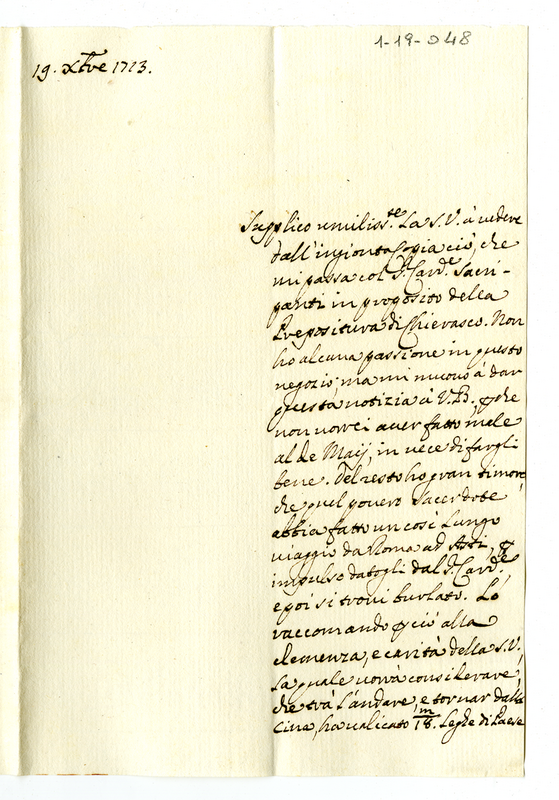 1-19-048
19. Xbre 1713.
Supplico umiliss.te La S.V. à vedere
dall'ingionta Copia ciò, che
mi passa col S.r Card.e Sacri-
panti in proposito della
Prepositura di Chierasco. Non
ho alcuna passione in questo
negozio, ma mi muovo à dar
questa notizia à V.B. che
non vorrei aver fatto male
al de Maij, in vece di fargli
bene. Del resto ho gran timore,
che quel povero Sacerdote
abbia fatto un così Lungo
viaggio da Roma ad Asti,
impulso datogli dal S.r Card.e,
e poi si trovi burlato. Lo
raccomando ciò alla
clemenza, e carità della S.V.
La quale vorrà considerare,
che trà L'andare, e tornar dalla
Cina, ha valicato 18.m Leghe di Paese